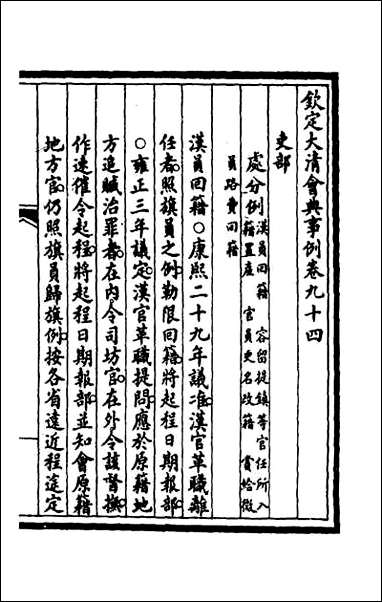 欽定大清會典事例卷九十四
吏部
處分例漢員回籍 容留提鎮等官任所入
籍置產 官員更名改籍 賞給微
員路費回籍
漢員回籍○康熙二十九年議准漢官革職離
任者照旗員之例勒限回籍將起程日期報部
○雍正三年議定漢官革職提問應於原籍地
方追贓治罪者在內令司坊官在外令該督撫
作速催令起程將起程日期報部並知會原籍
地方官仍照旗員歸旗例按各省遠近程途定